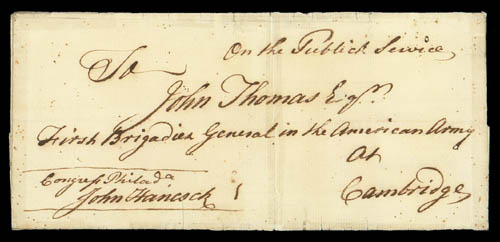 On the Publick Service
To
John Thomas Esqr.
First Brigadier General in the American Army
At
Cambridge
Congress Philada
John Hancock